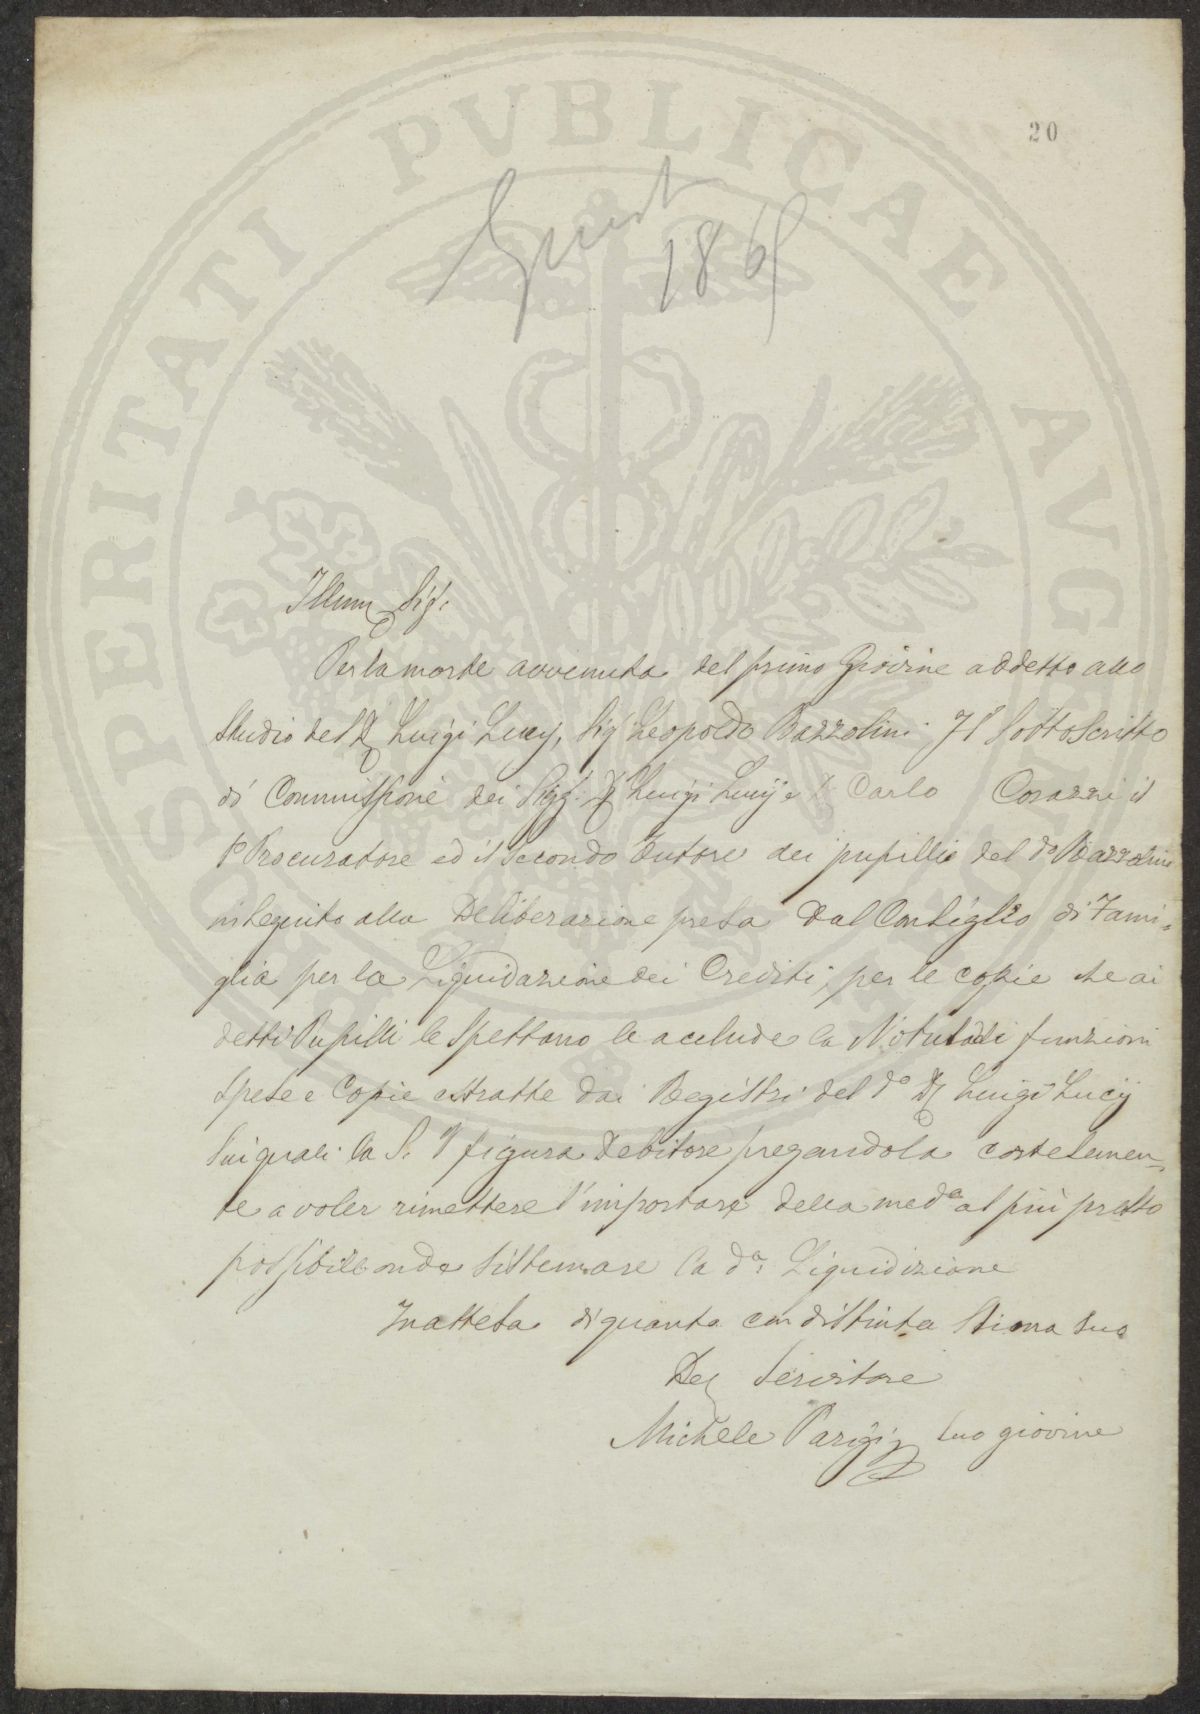 20
1869
PROSPERITATI PVBLICAE AVGENDAE
Illmo Sigr
Per la morte avvenuta del primo Giovine addetto allo
Studio del Dr Luigi Lucij, Sigr Leopoldo Bazzolini Il Sottoscritto
di Commissione dei Sigg. Dr Luigi Lucij e Dr Carlo Corazzi il
1o Procuratore ed il secondo Tutore dei pupilli del do Bazzolini
in seguito alla Deliberazione presa dal Consiglio di Fami-
glia per la Liquidazione dei Crediti, per le copie che ai
detti Pupilli le Spettano le acclude la Notula di funzioni
Spese e Copie estratte dai Registri del do Dr Luigi Lucij
Sui quali la S. V. figura Debitore pregandola cortesemen-
te a voler rimettere l'importare della meda al più presto
possibile onde sistemare la da Liquidizione
In attesa di quanto con distinta Stima suo
Dev Servitore
Michele Parigi suo giovine